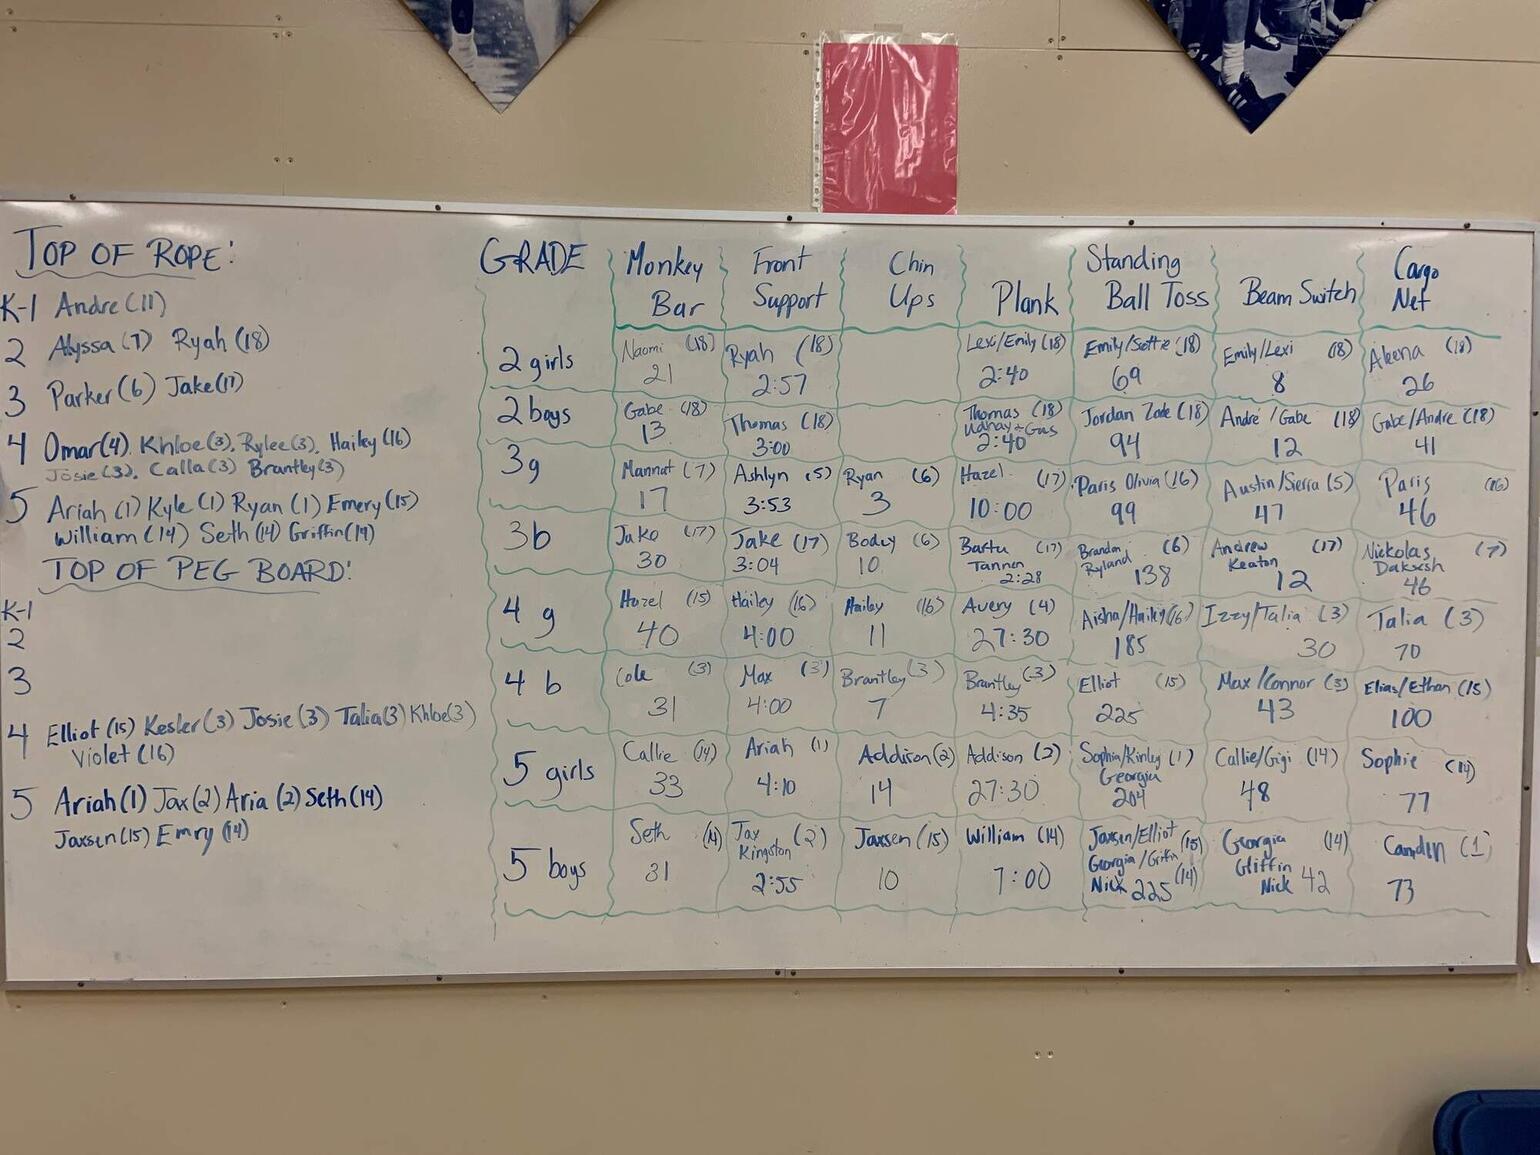 TOP OF ROPE:
K-1 Andre (11)
2 Alyssa (7) Ryah (18)
3 Parker (6) Jake (17)
4 Omar (4), Khloe (3), Rylee (3), Hailey (16)
Josie (3), Calla (3) Brantley (3)
5 Ariah (1) Kyle (1) Ryan (1) Emery (15)
William (14) Seth (14) Griffin (14)
TOP OF PEG BOARD:
K-1
2
3
4 Elliot (15) Kesler (3) Josie (3) Talia (3) Khloe (3)
Violet (16)
5 Ariah (1) Jax (2) Aria (2) Seth (14)
Jaxsen (15) Emry (14)
GRADE Monkey Bar Front Support Chin Ups Plank Standing Ball Toss Beam Switch Cargo Net
2 girls Naomi (18) Ryah (18) Lexi/Emily (18) Emily/ (18) Emily/Lexi (18) (18)
21 2:57 2:40 69 8 26
2 boys Gabe (18) Thomas (18) Thomas (18) Jordan Zade (18) Andre/Gabe (18) Gabe/Andre (18)
Gus
13 3:00 2:40 94 12 41
3g Mannat (7) Ashlyn (5) Ryan (6) Hazel (17) Paris Olivia (16) Austin/Sierra (5) Paris (16)
17 3:53 3 10:00 99 47 46
3b Jake (17) Jake (17) Bodey (6) (17) Brandon (6) Andrew (17) Nickolas (7)
Tannen Ryland Keaton
30 3:04 10 2:28 138 12 46
4 g Hazel (15) Hailey (16) Hailey (16) Avery (4) Aisha/Hailey (16) Izzy/Talia (3) Talia (3)
40 4:00 11 27:30 185 30 70
4 b Cole (3) Max (3) Brantley (3) Brantley (3) Elliot (15) Max/Connor (3) Elias/Ethan (15)
31 4:00 7 4:35 225 43 100
5 girls Callie (14) Ariah (1) Addison (2) Addison (2) Sophia/Kinley (1) Callie/Gigi (14) Sophie (14)
Georgia
33 4:10 14 27:30 204 48 77
5 boys Seth (14) Jax (2) Jaxsen (15) William (14) Jaxsen/Elliot (15) Georgia (14) Camden (1)
Kingston Georgia/Griffin Griffin
Nick (14) Nick
31 2:55 10 7:00 225 42 73